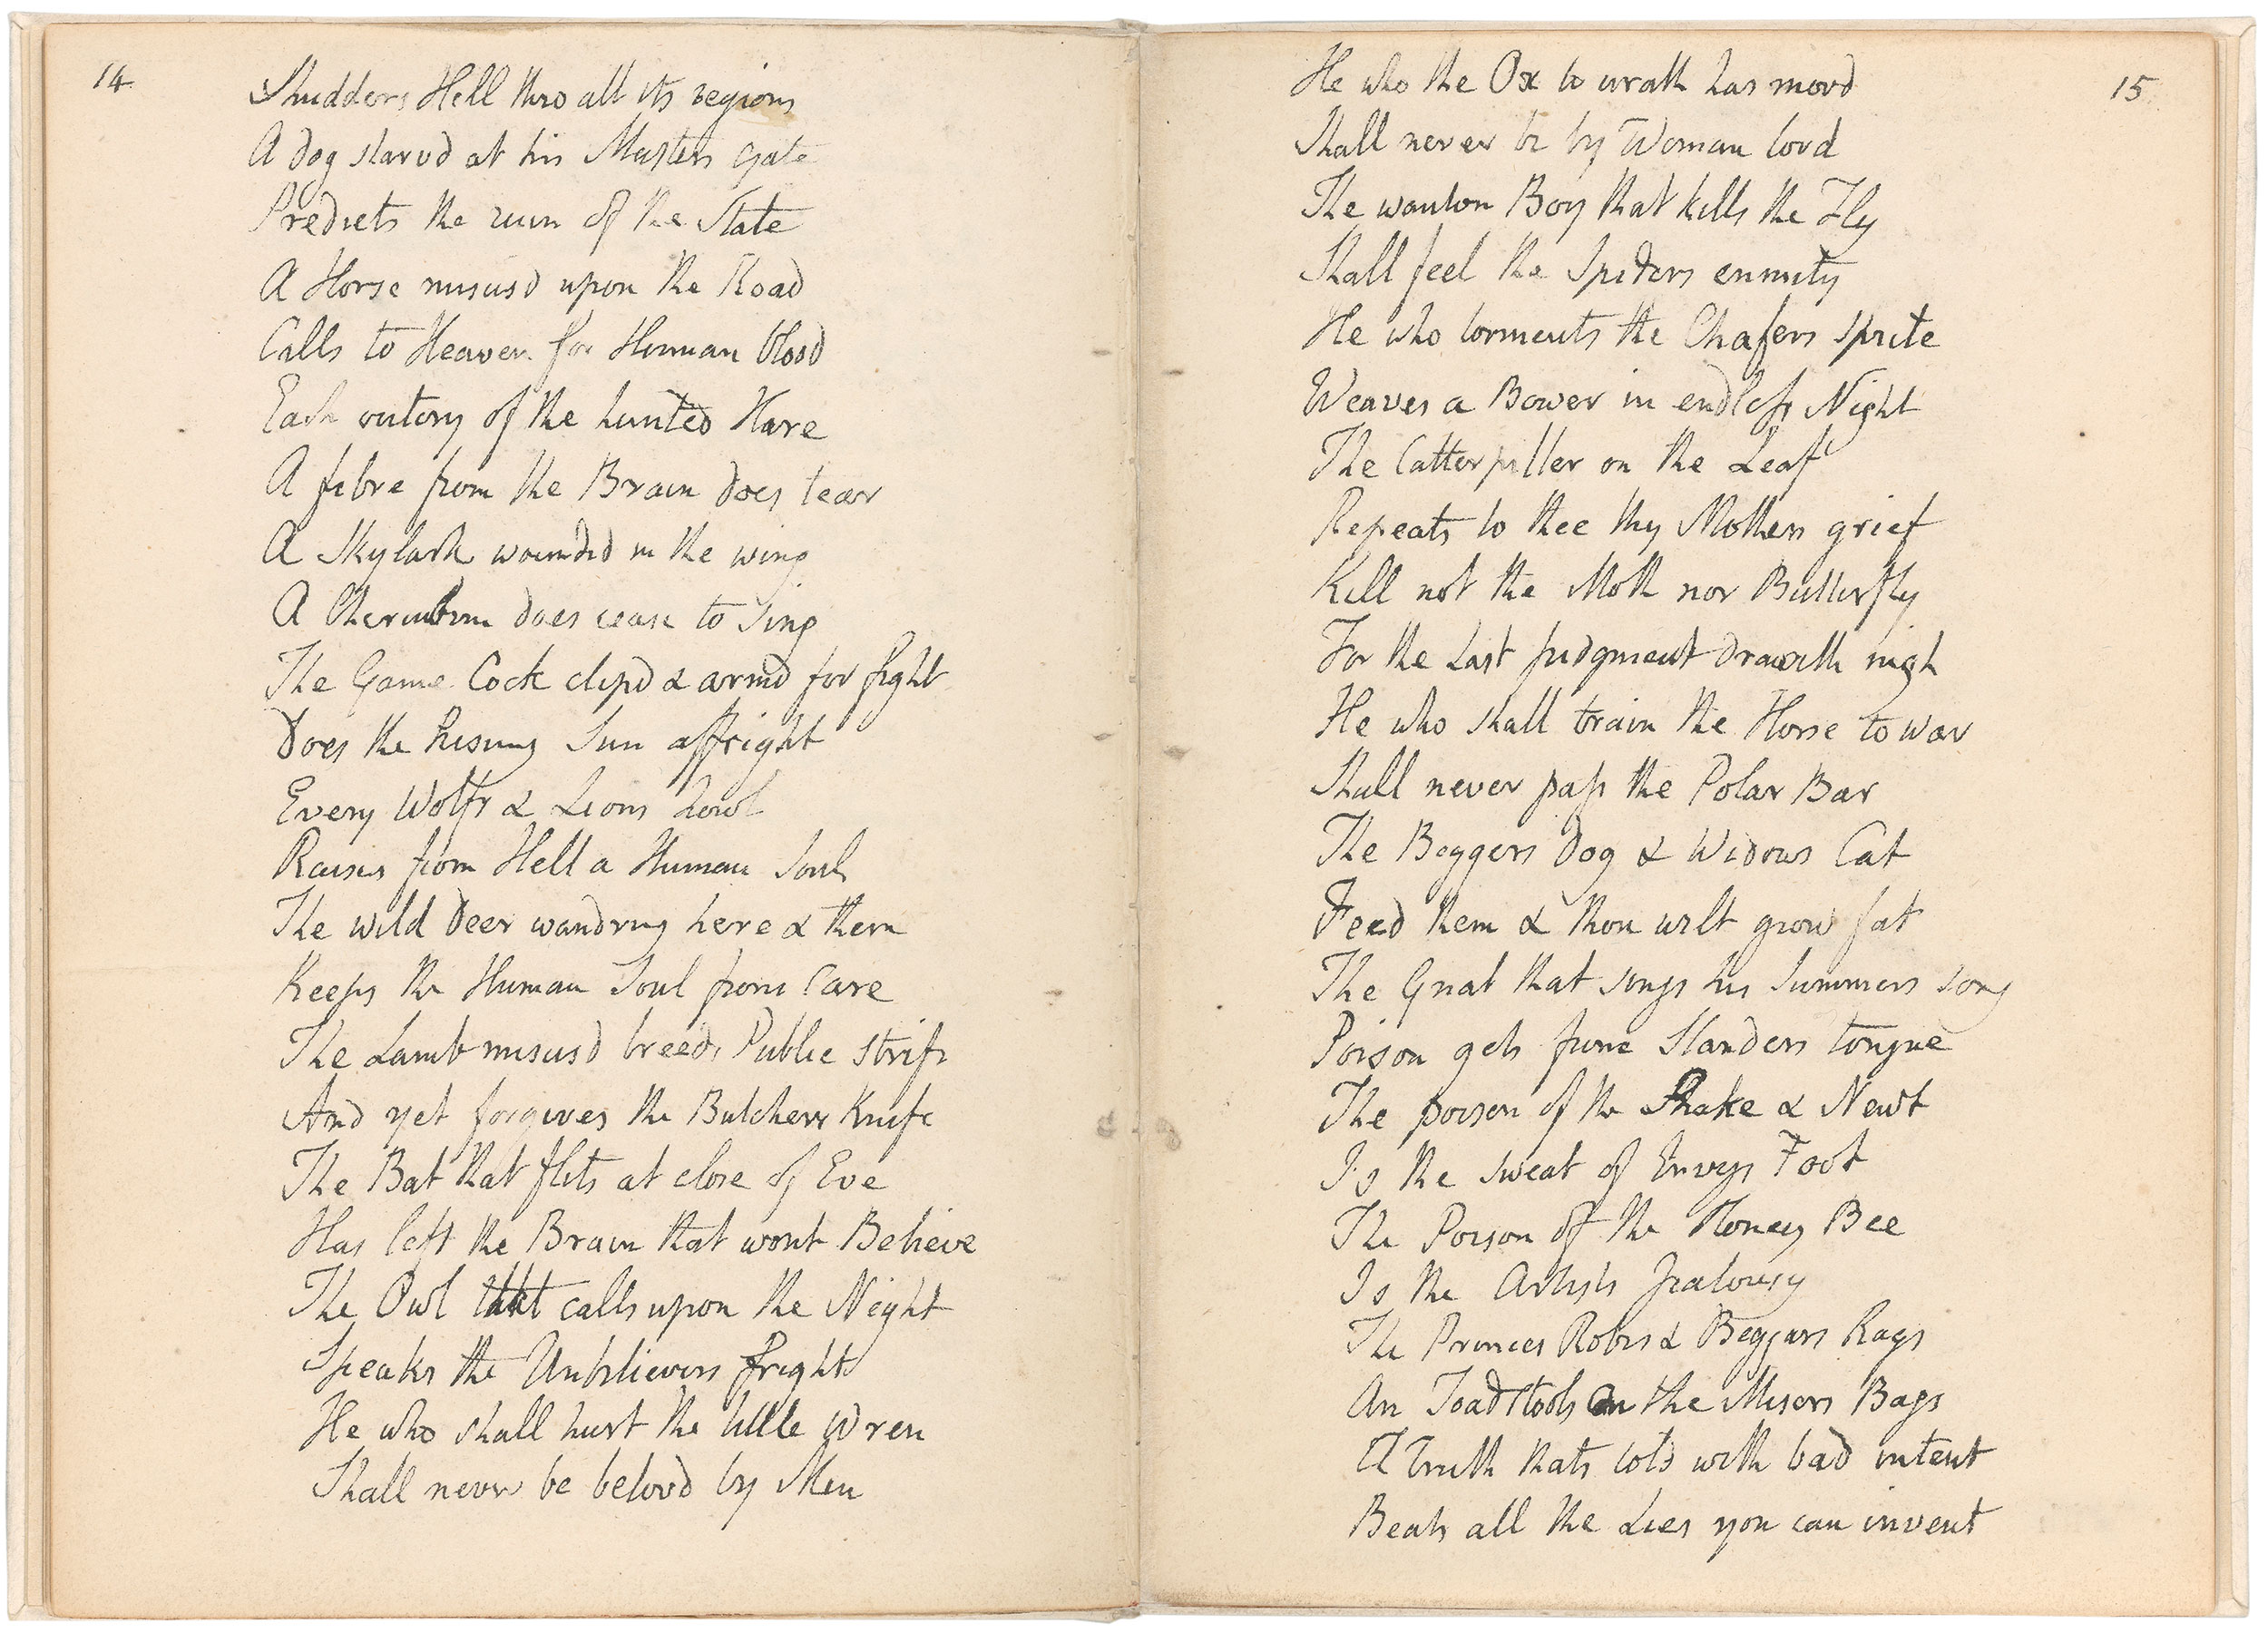 14
Shudders Hell thro all its regions
A dog starvd at his Masters Gate
Predicts the ruin of the State
A Horse misusd upon the Road
Calls to Heaven for Human blood
Each outcry of the hunted Hare
A fibre from the Brain does tear
A Skylark wounded in the wing
A Cherubim does cease to sing
The Game Cock clipd & armd for fight
Does the Rising Sun affright
Every Wolfs & Lions howl
Raises from Hell a Human Soul
The wild deer wandring here & there
Keeps the Human Soul from Care
The Lamb misusd breeds Public strife
And yet forgives the Butchers Knife
The Bat that flits at close of Eve
Has left the Brain that wont Believe
The Owl that calls upon the Night
Speaks the Unbelievers fright
He who shall hurt the little Wren
Shall never be belovd by Men
15
He who the Ox to wrath has movd
Shall never be by Woman lovd
The wanton Boy that kills the Fly
Shall feel the Spiders enmity
He who torments the Chafers sprite
Weaves a Bower in endless Night
The Catterpiller on the Leaf
Repeats to thee thy Mothers grief
Kill not the Moth nor Butterfly
For the Last Judgment draweth nigh
He who shall train the Horse to War
Shall never pass the Polar Bar
The Beggers Dog & Widows Cat
Feed them & thou wilt grow fat
The Gnat that sings his Summers song
Poison gets from Slanders tongue
The poison of the Snake & Newt
Is the sweat of Envys Foot
The Poison of the Honey Bee
Is the Artists Jealousy
The Princes Robes & Beggars Rags
Are Toadstools on the Misers Bags
A truth thats told with bad intent
Beats all the Lies you can invent